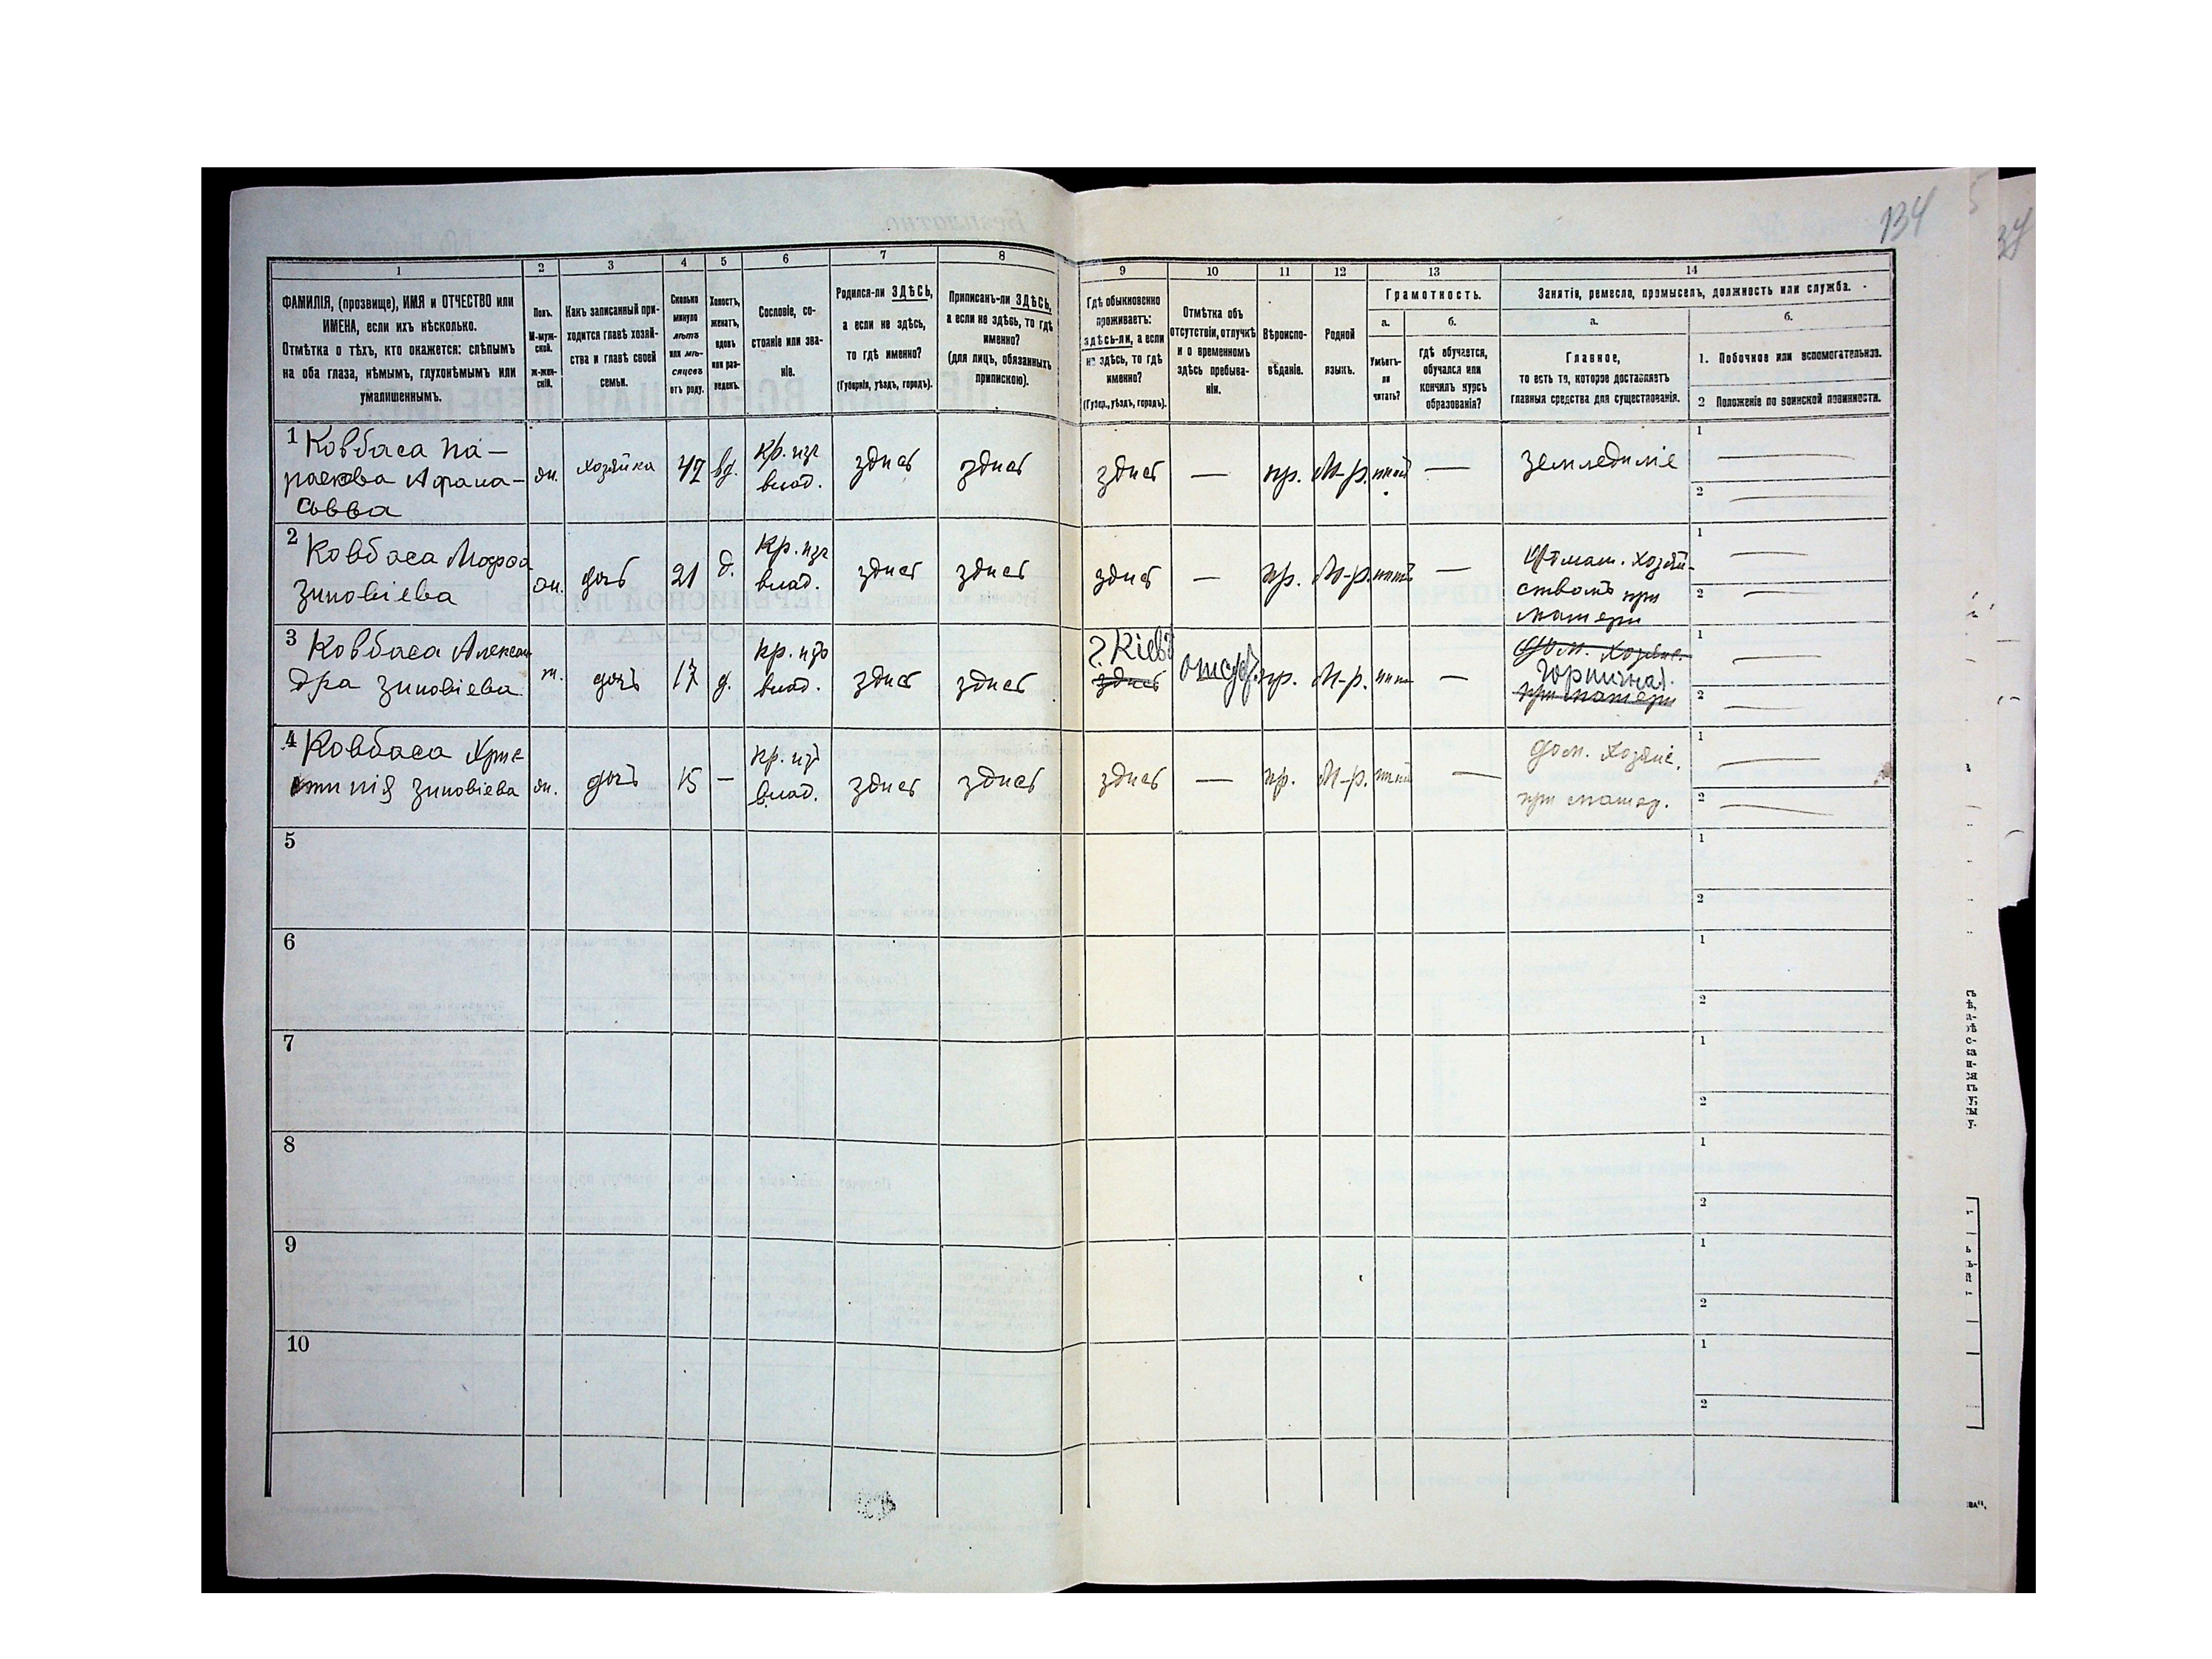 134
1
2
3
4
5
6
7
8
9
10
11
12
13
14
ФАМИЛІЯ, (прозвище), ИМЯ и ОТЧЕСТВО или
ИМЕНА, если ихъ нѣсколько.
Отмѣтка о тѣхъ, кто окажется: слѣпымъ
на оба глаза, нѣмымъ, глухонѣмымъ или
умалишеннымъ.
Полъ.
М-муж-
ской.
ж-жен-
скій.
Какъ записанный при-
ходится главѣ хозяй-
ства и главѣ своей
семьи.
Сколько
минуло
лѣтъ
или мѣ-
сяцевъ
отъ роду.
Холостъ,
женатъ,
вдовъ
или раз-
веденъ.
Сословіе, со-
стояніе или зва-
ніе.
Родился-ли ЗДѢСЬ,
а если не здѣсь,
то гдѣ именно?
(Губернія, уѣздъ, городъ).
Приписанъ-ли ЗДѢСЬ,
а если не здѣсь, то гдѣ
именно?
(для лицъ, обязанныхъ
припискою).
Гдѣ обыкновенно
проживаетъ:
здѣсь-ли, а если
не здѣсь, то гдѣ
именно?
(Губер., уѣздъ, городъ).
Отмѣтка объ
отсутствіи, отлучкѣ
и о временномъ
здѣсь пребыва-
ніи.
Вѣроиспо-
вѣданіе.
Родной
языкъ.
Грамотность.
а.
Умѣетъ-
ли
читать?
б.
гдѣ обучается,
обучался или
кончилъ курсъ
образованія?
Занятіе, ремесло, промыселъ, должность или служба.
а.
Главное,
то есть то, которое доставляетъ
главныя средства для существованія.
б.
1. Побочное или вспомогательное.
2 Положеніе по воинской повинности.
1 Ковбаса Па-
раскева Афана-
сьева
ж. хозяйка 47 вд. кр. изъ
влад. здѣсь здѣсь здѣсь — пр. М-р. — земледѣліе
1
2
2 Ковбаса Марфа
Зиновіева
ж. дочь 21 д. кр. изъ
влад. здѣсь здѣсь здѣсь — пр. М-р. нѣтъ — хозяй-
ствомъ при
матери
1
2
3 Ковбаса Алексан
дра Зиновіева
ж. дочь 17 д. кр. изъ
влад. здѣсь здѣсь г. Кіевъ
здѣсь
пр. М-р. нѣтъ — дом. хозяйс.
Горничная.
при матери
1
2
4 Ковбаса Хрис
тинія Зиновіева
ж. дочь 15 — кр. изъ
влад. здѣсь здѣсь здѣсь — пр. М-р. нѣтъ — дом. хозяйс.
при матер.
1
2
5
1
2
6
1
2
7
1
2
8
1
2
9
1
2
10
1
2